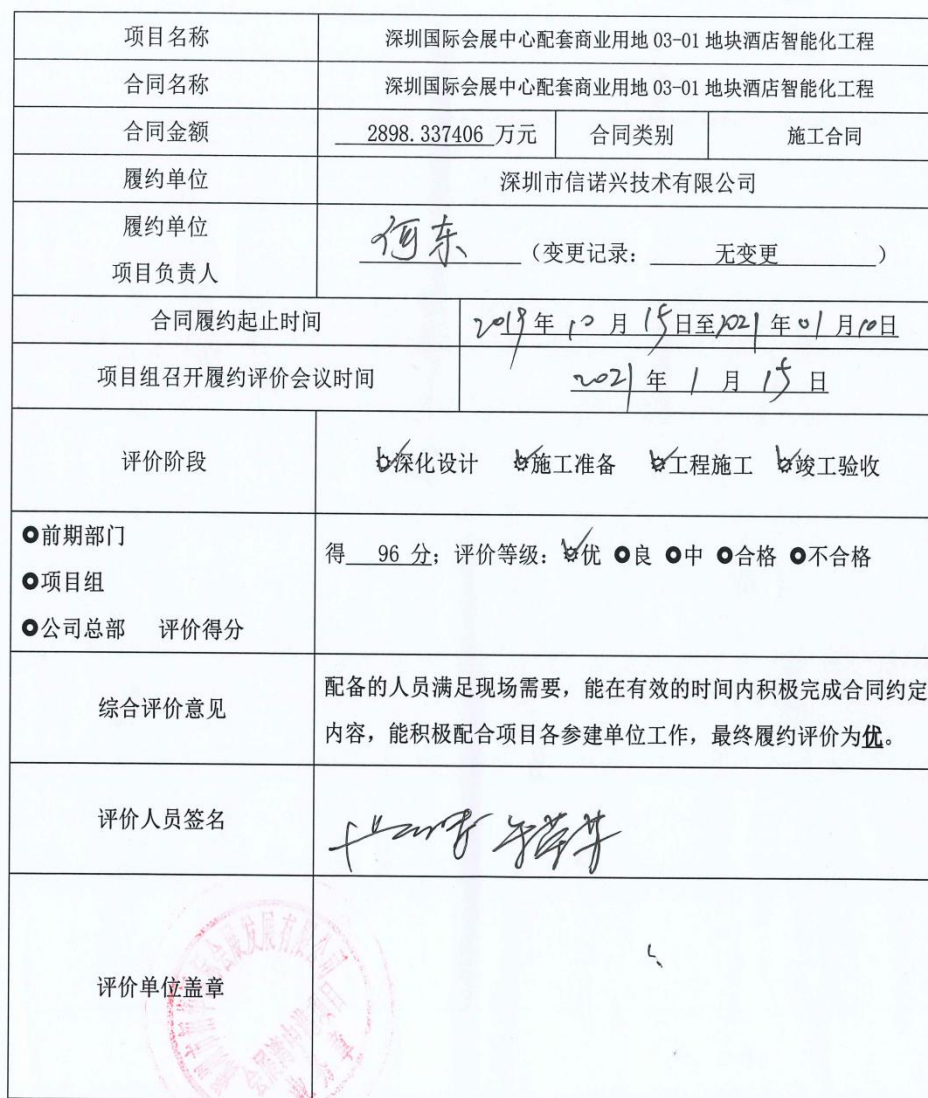 项目名称 深圳国际会展中心配套商业用地 03-01 地块酒店智能化工程
合同名称 深圳国际会展中心配套商业用地 03-01 地块酒店智能化工程
合同金额 2898.337406 万元 合同类别 施工合同
履约单位 深圳市信诺兴技术有限公司
履约单位
项目负责人 何东 (变更记录: 无变更 )
合同履约起止时间 2019 年 10 月 15 日至 2021 年 01 月 10 日
项目组召开履约评价会议时间 2021 年 1 月 15 日
评价阶段 深化设计 施工准备 工程施工 竣工验收
前期部门
项目组
公司总部 评价得分
得 96 分; 评价等级: 优 良 中 合格 不合格
综合评价意见
配备的人员满足现场需要, 能在有效的时间内积极完成合同约定
内容, 能积极配合项目各参建单位工作, 最终履约评价为优。
评价人员签名
评价单位盖章